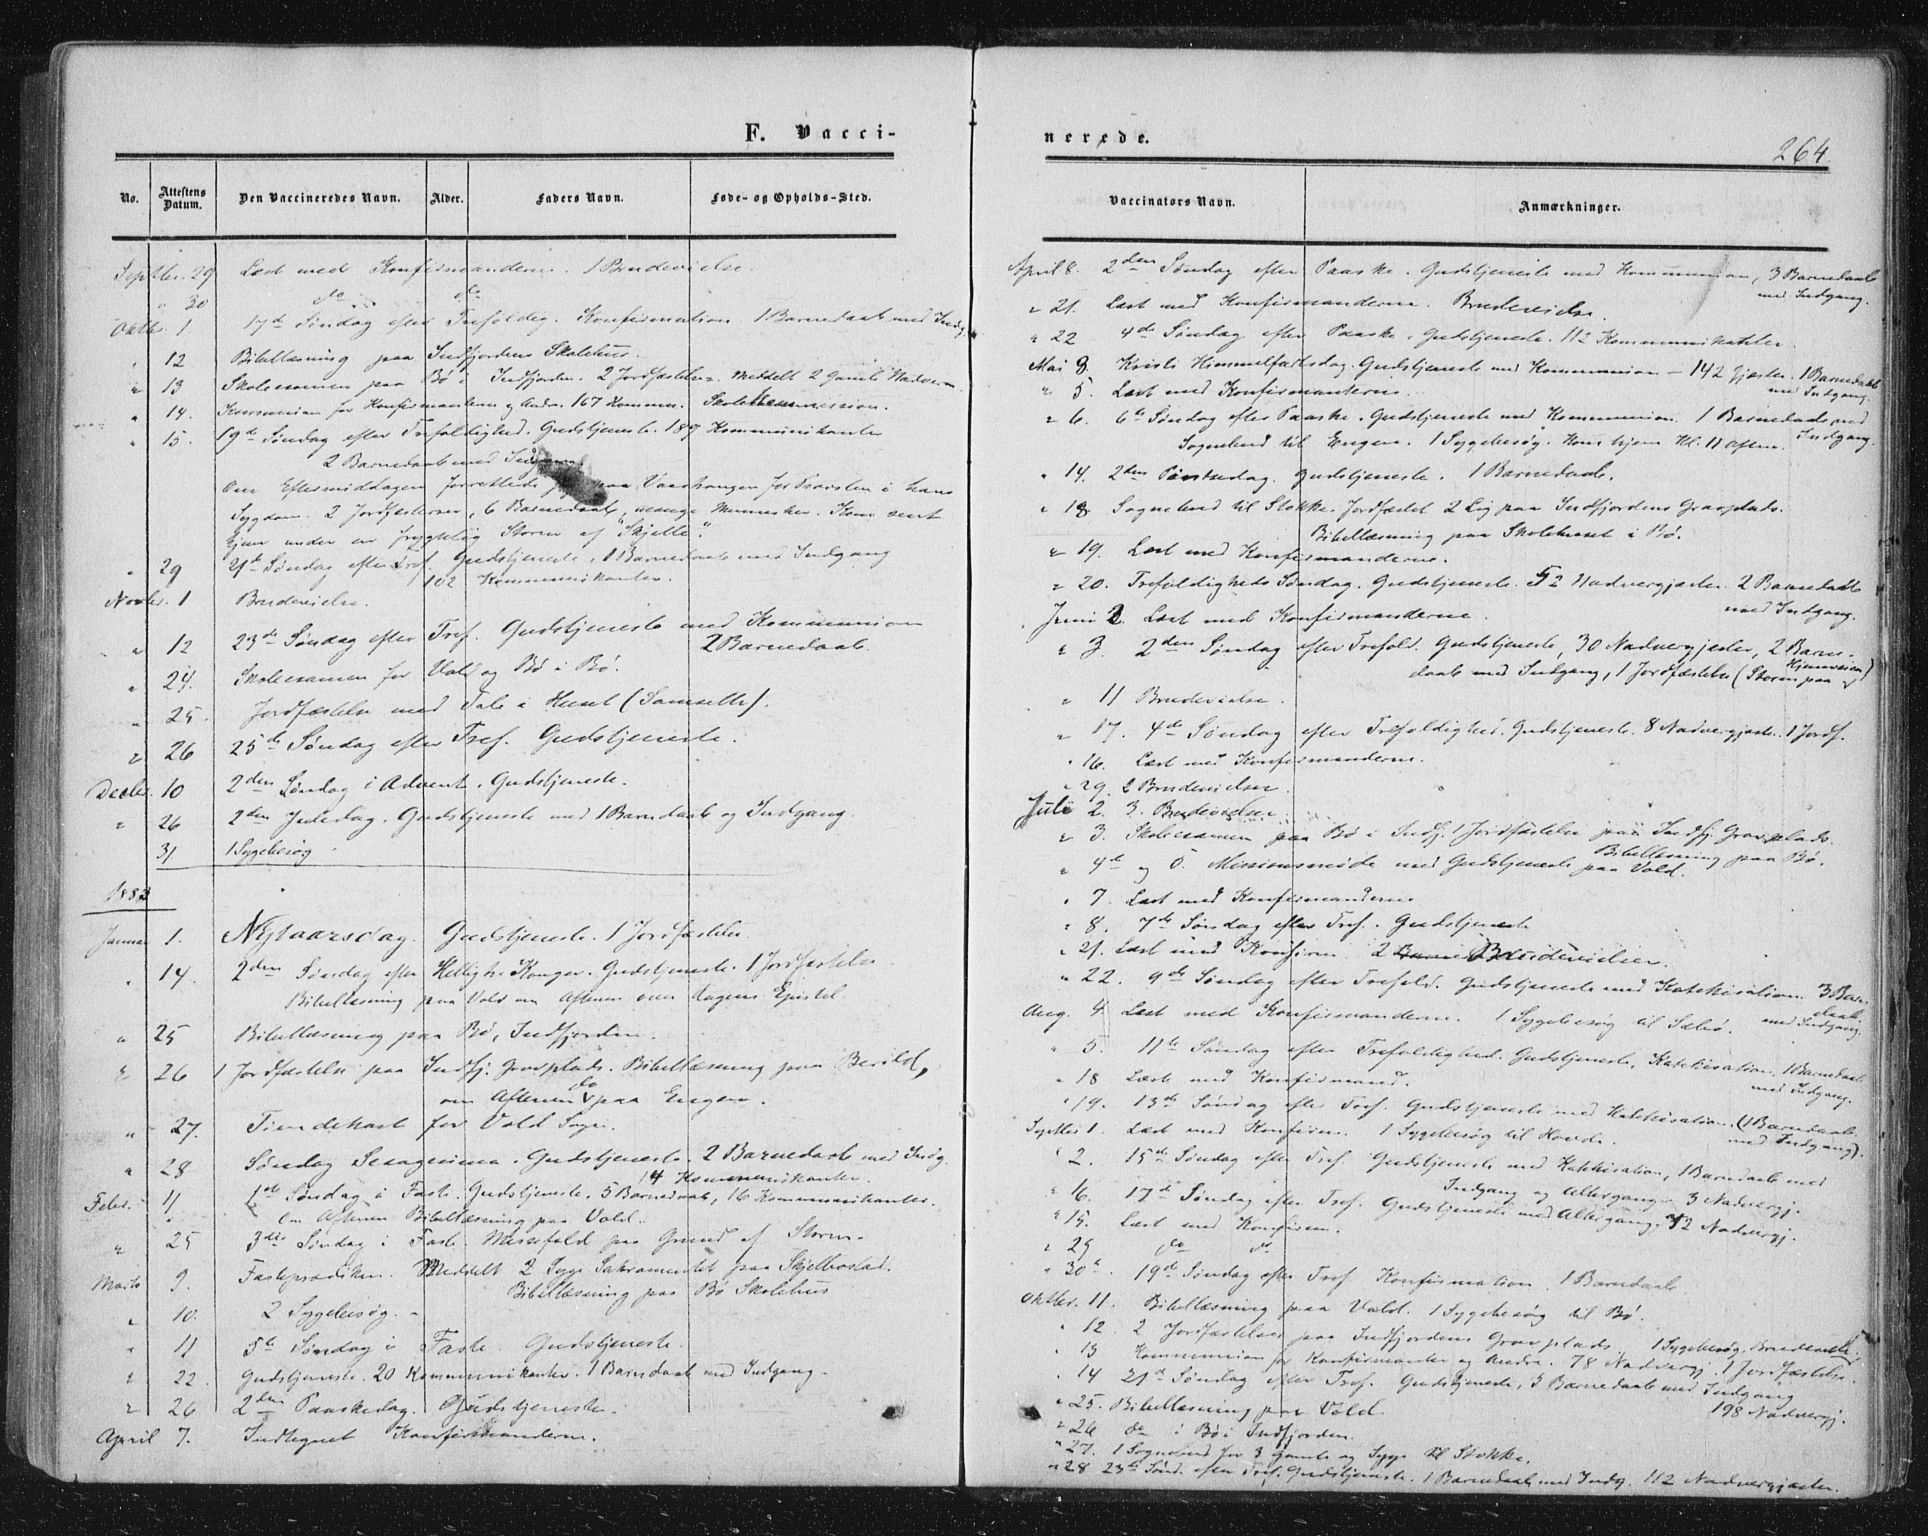 F. Vacci-
No.
Attestens Datum.
Den Vaccineredes Navn.
Alder.
Faders Navn.
Føde- og Opholds-Sted.
Septbr. 29 Læst med Konfirmanderne. 1 Brudevielse.
" 30 do do
Oktbr. 1 17de Søndag efter Trefoldig. Konfirmation 1 Barnedaab med Indg.
" 12 Bibellæsning paa Indfjordens Skolehus.
" 13 Skoleexamen paa Bø i Indfjorden. 2 Jordfæstelser. Meddelt 2 Gamle Nadveren
" 14. for Konfirmanterne og Andre. 167 Kommun. Skolekommission.
" 15. 19de Søndag efter Trefoldighed. Gudstjeneste. 187 Kommunikanter
2 Barnedaab med Indgang
Om Eftermiddagen forrettede jeg paa for Provsten i hans
Sygdom. 2 Jordfæstelser, 6 Barnedaab, mange Mennesker. Kom sent
hjem under en frygtelig Storm af "Skjelte".
" 29 21de Søndag efter Tref. Gudstjeneste, 1 Barnedaab med Indgang
102 Kommunikanter.
Novbr. 1 Brudevielse.
" 12 23de Søndag efter Tref. Gudstjeneste med Kommunion
2 Barnedaab.
" 24. Skoleexamen for Vold og Bø i Bø.
" 25. Jordfæstelse med Tale i Huset
" 26 25de Søndag efter Tref. Gudstjeneste.
Decbr. 10 2den Søndag i Advent. Gudstjeneste.
" 26 2den Juledag. Gudstjeneste med 1 Barnedaab og Indgang.
31 1 Sygebesøg
1883
Januar 1. Nytaarsdag. Gudstjeneste. 1 Jordfæstelse
" 14. 2den Søndag efter Hellig tre Konger. Gudstjeneste. 1 Jordfæstelse
Bibellæsning paa Vold om Aftenen over Dagens Epistel.
" 25 Bibellæsning paa Bø, Indfjorden.
" 26 1 Jordfæstelse paa Indfj. Gravplads. Bibellæsning paa Berild,
om Aftenen do paa Engen.
" 27. Tiendekast for Vold Sogn.
" 28 Søndag Sexagesima. Gudstjeneste. 2 Barnedaab med Indg.
14 Kommunikanter.
Febr. 11 1ste Søndag i Faste. Gudstjeneste. 5 Barnedaab, 16 Kommunikanter.
Om Aftenen Bibellæsning paa Vold.
" 25 3die Søndag i Faste. Messefald paa Grund af Storm.
Marts 9. Fasteprædiken. Meddelt 2 Syge Sakramentet paa Skjelbostad.
Bibellæsning paa Bø Skolehus
" 10. 2 Sygebesøg.
" 11 5te Søndag i Faste. Gudstjeneste.
" 22. Gudstjeneste. 20 Kommunikanter. 1 Barnedaab med Indgang.
" 26 2den Paaskedag. Gudstjeneste.
April 7. Indtegnet Konfirmanderne.
nerede.
264
Vaccinators Navn.
Anmærkninger.
April 8. 2den Søndag efter Paaske. Gudstjeneste med Kommunion, 3 Barnedaab
med Indgang.
" 21. Læst med Konfirmanderne. Brudevielse.
" 22 4de Søndag efter Paaske. Gudstjeneste. 112 Kommunikanter.
Mai 3. Kristi Himmelfartsdag. Gudstjeneste med Kommunion - 142 Gjæster. 1 Barnedaab
med Indgang.
" 5. Læst med Konfirmanterne.
" 6. 6te Søndag efter Paaske. Gudstjeneste med Kommunion. 1 Barnedaab med
Indgang.
Sognebud til Engen. 1 Sygebesøg. Kom hjem Kl. 11 Aften.
" 14. 2den Pintsedag. Gudstjeneste. 1 Barnedaab.
" 18. Sognebud til Stokke. Jordfæstet 2 Lig paa Indfjordens Gravplads.
Bibellæsning paa Skolehuset i Bø.
" 19. Læst med Konfirmanderne.
" 20. Trefoldigheds Søndag. Gudstjeneste. 52 Nadvergjæster. 2 Barnedaab
med Indgang.
Juni 2. Læst med Konfirmanderne.
" 3 2den Søndag efter Trefold. Gudstjeneste, 30 Nadvergjæster, 2 Barne-
daab med Indgang, 1 Jordfæstelse (Storm paa Hjemveien)
" 11 Brudevielse.
" 17. 4de Søndag efter Trefoldighed. Gudstjeneste. 8 Nadvergjæster. 1 Jordf.
" 16. Læst med Konfirmanderne.
" 29. 2 Brudevielser.
Juli 2. 3. Brudevielser.
" 3. Skoleexamen paa Bø i Indfj. 1 Jordfæstelse paa Indfj. Gravplads.
Bibellæsning paa Bø.
" 4de og 5. Missionsmøde med Gudstjeneste paa Vold.
" 7. Læst med Konfirmanderne
" 8. 7de Søndag efter Tref. Gudstjeneste
" 21. Læst med Konfirm. 2 Brudevielser.
" 22. 9de Søndag efter Trefold. Gudstjeneste med Katekisation. 3 Barne-
daab
med Indgang.
Aug. 4 Læst med Konfirmanderne. 1 Sygebesøg til Sæbø.
" 5. 11te Søndag efter Trefoldighed. Gudstjeneste, Katekisation, 1 Barnedaab
med Indgang.
" 18 Læst med Konfirmand.
" 19. 13de Søndag efter Tref. Gudstjeneste med Katekisation. (1 Barnedaab
med Indgang).
Septbr 1. Læst med Konfirm. 1 Sygebesøg til Hovde.
" 2. 15de Søndag efter Tref. Gudstjeneste med Katekisation, 1 Barnedaab med
Indgang og Altergang - 3 Nadvergj.
" 16. 17de Søndag efter Tref. Gudstjeneste med Altergang. 12 Nadvergj.
" 15. Læst med Konfirm.
" 29 do do
" 30te. 19de Søndag efter Tref. Konfirmation. 1 Barnedaab
Oktbr. 11. Bibellæsning paa Vold. 1 Sygebesøg til Bø.
" 12. 2 Jordfæstelser paa Indfjordens Gravplads. 1 Sygebesøg. Brudevielse.
" 13 Kommunion for Konfirmanter og Andre. 78 Nadvergj. 1 Jordfæstelse.
" 14 21de Søndag efter Tref. Gudstjeneste, 3 Barnedaab med Indgang
198 Nadvergj.
" 25. Bibellæsning paa Vold.
" 26 do i Bø i Indfjorden.
" 27. 1 Sognebud for 3 Gamle og Syge til Stokke.
" 28 23de Sønd. efter Tref. Gudstjeneste. 1 Barnedaab med Indg. 112 Nadvergjæster.